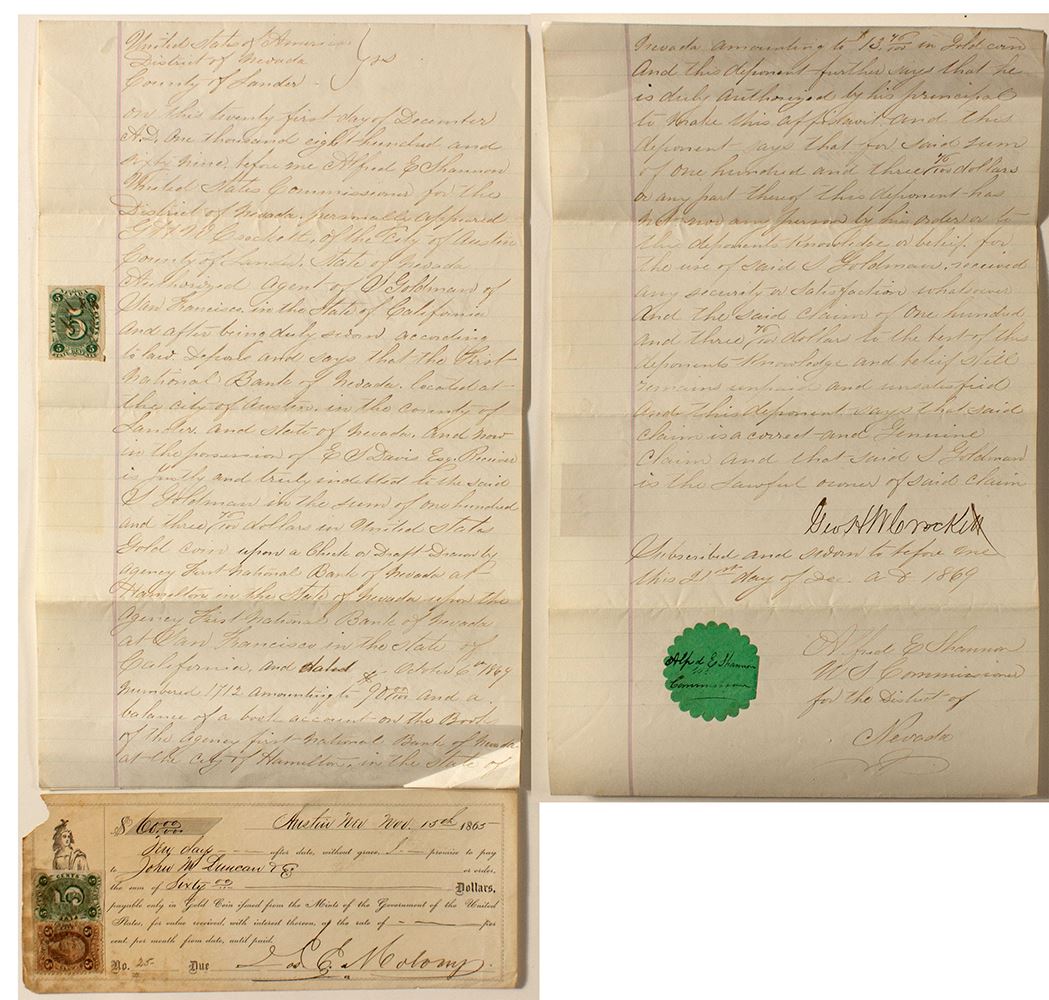 United States of America
District of Nevada } ss
County of Lander
On this twenty first day of December
A.D. One thousand eight hundred and
sixty nine, before me Alfred E Shannon
United States Commissioner for the
District of Nevada, personally appeared
Geo H W Crockett, of the City of Austin
County of Lander, State of Nevada
Authorized Agent of S Goldman of
San Francisco in the State of California
and after being duly sworn according
to law Deposes and says that the First
National Bank of Nevada, located at
the city of Austin, in the county of
Lander, and State of Nevada, and now
in the possession of E S Davis Esq. Receiver
is justly and truly indebted to the said
S Goldman in the sum of one hundred
and three 76/100 dollars in United States
Gold coin upon a Check or Draft Drawn by
agency First National Bank of Nevada at
Hamilton in the State of Nevada upon the
Agency First National Bank of Nevada
at San Francisco in the State of
California, and dated October 6th 1869
Numbered 1712 Amounting to $90 00/100 and a
balance of a book account on the Book
of the Agency first National Bank of Nevada
at the city of Hamilton, in the State of
5 5
5
FIVE CENTS
5 5
Nevada amounting to $13. 76/100 in Gold coin
And this deponent further says that he
is duly authorized by his principal
to make this affidavit and this
deponent says that for said sum
of one hundred and three 76/100 dollars
or any part thereof this deponent has
not nor any person by his order or to
this deponents knowledge or belief, for
the use of said S Goldman, received
any security or satisfaction whatsoever
And the said claim of One hundred
and three 76/100 dollars to the best of this
deponents knowledge and belief still
remains unpaid and unsatisfied
And this deponent says that said
claim is a correct and Genuine
Claim and that said S Goldman
is the Lawful owner of said claim
Geo H W Crockett
Subscribed and sworn to before me
this 21st day of Dec. A D 1869
Alfred E Shannon
U S Commissioner
for the District of
Nevada
Alfd E Shannon
U S
Commissioner
$ 60.00/100 Austin Nev Nov. 15th 1865
Ten days after date, without grace, I promise to pay
to John M Duncan & Co or order,
the sum of Sixty 00/100 Dollars,
payable only in Gold Coin issued from the Mints of the Government of the United
States, for value received, with interest thereon, at the rate of per
cent. per month from date, until paid.
No. 25 Due Jos E. Malony
5 CENTS 5
5
5 5